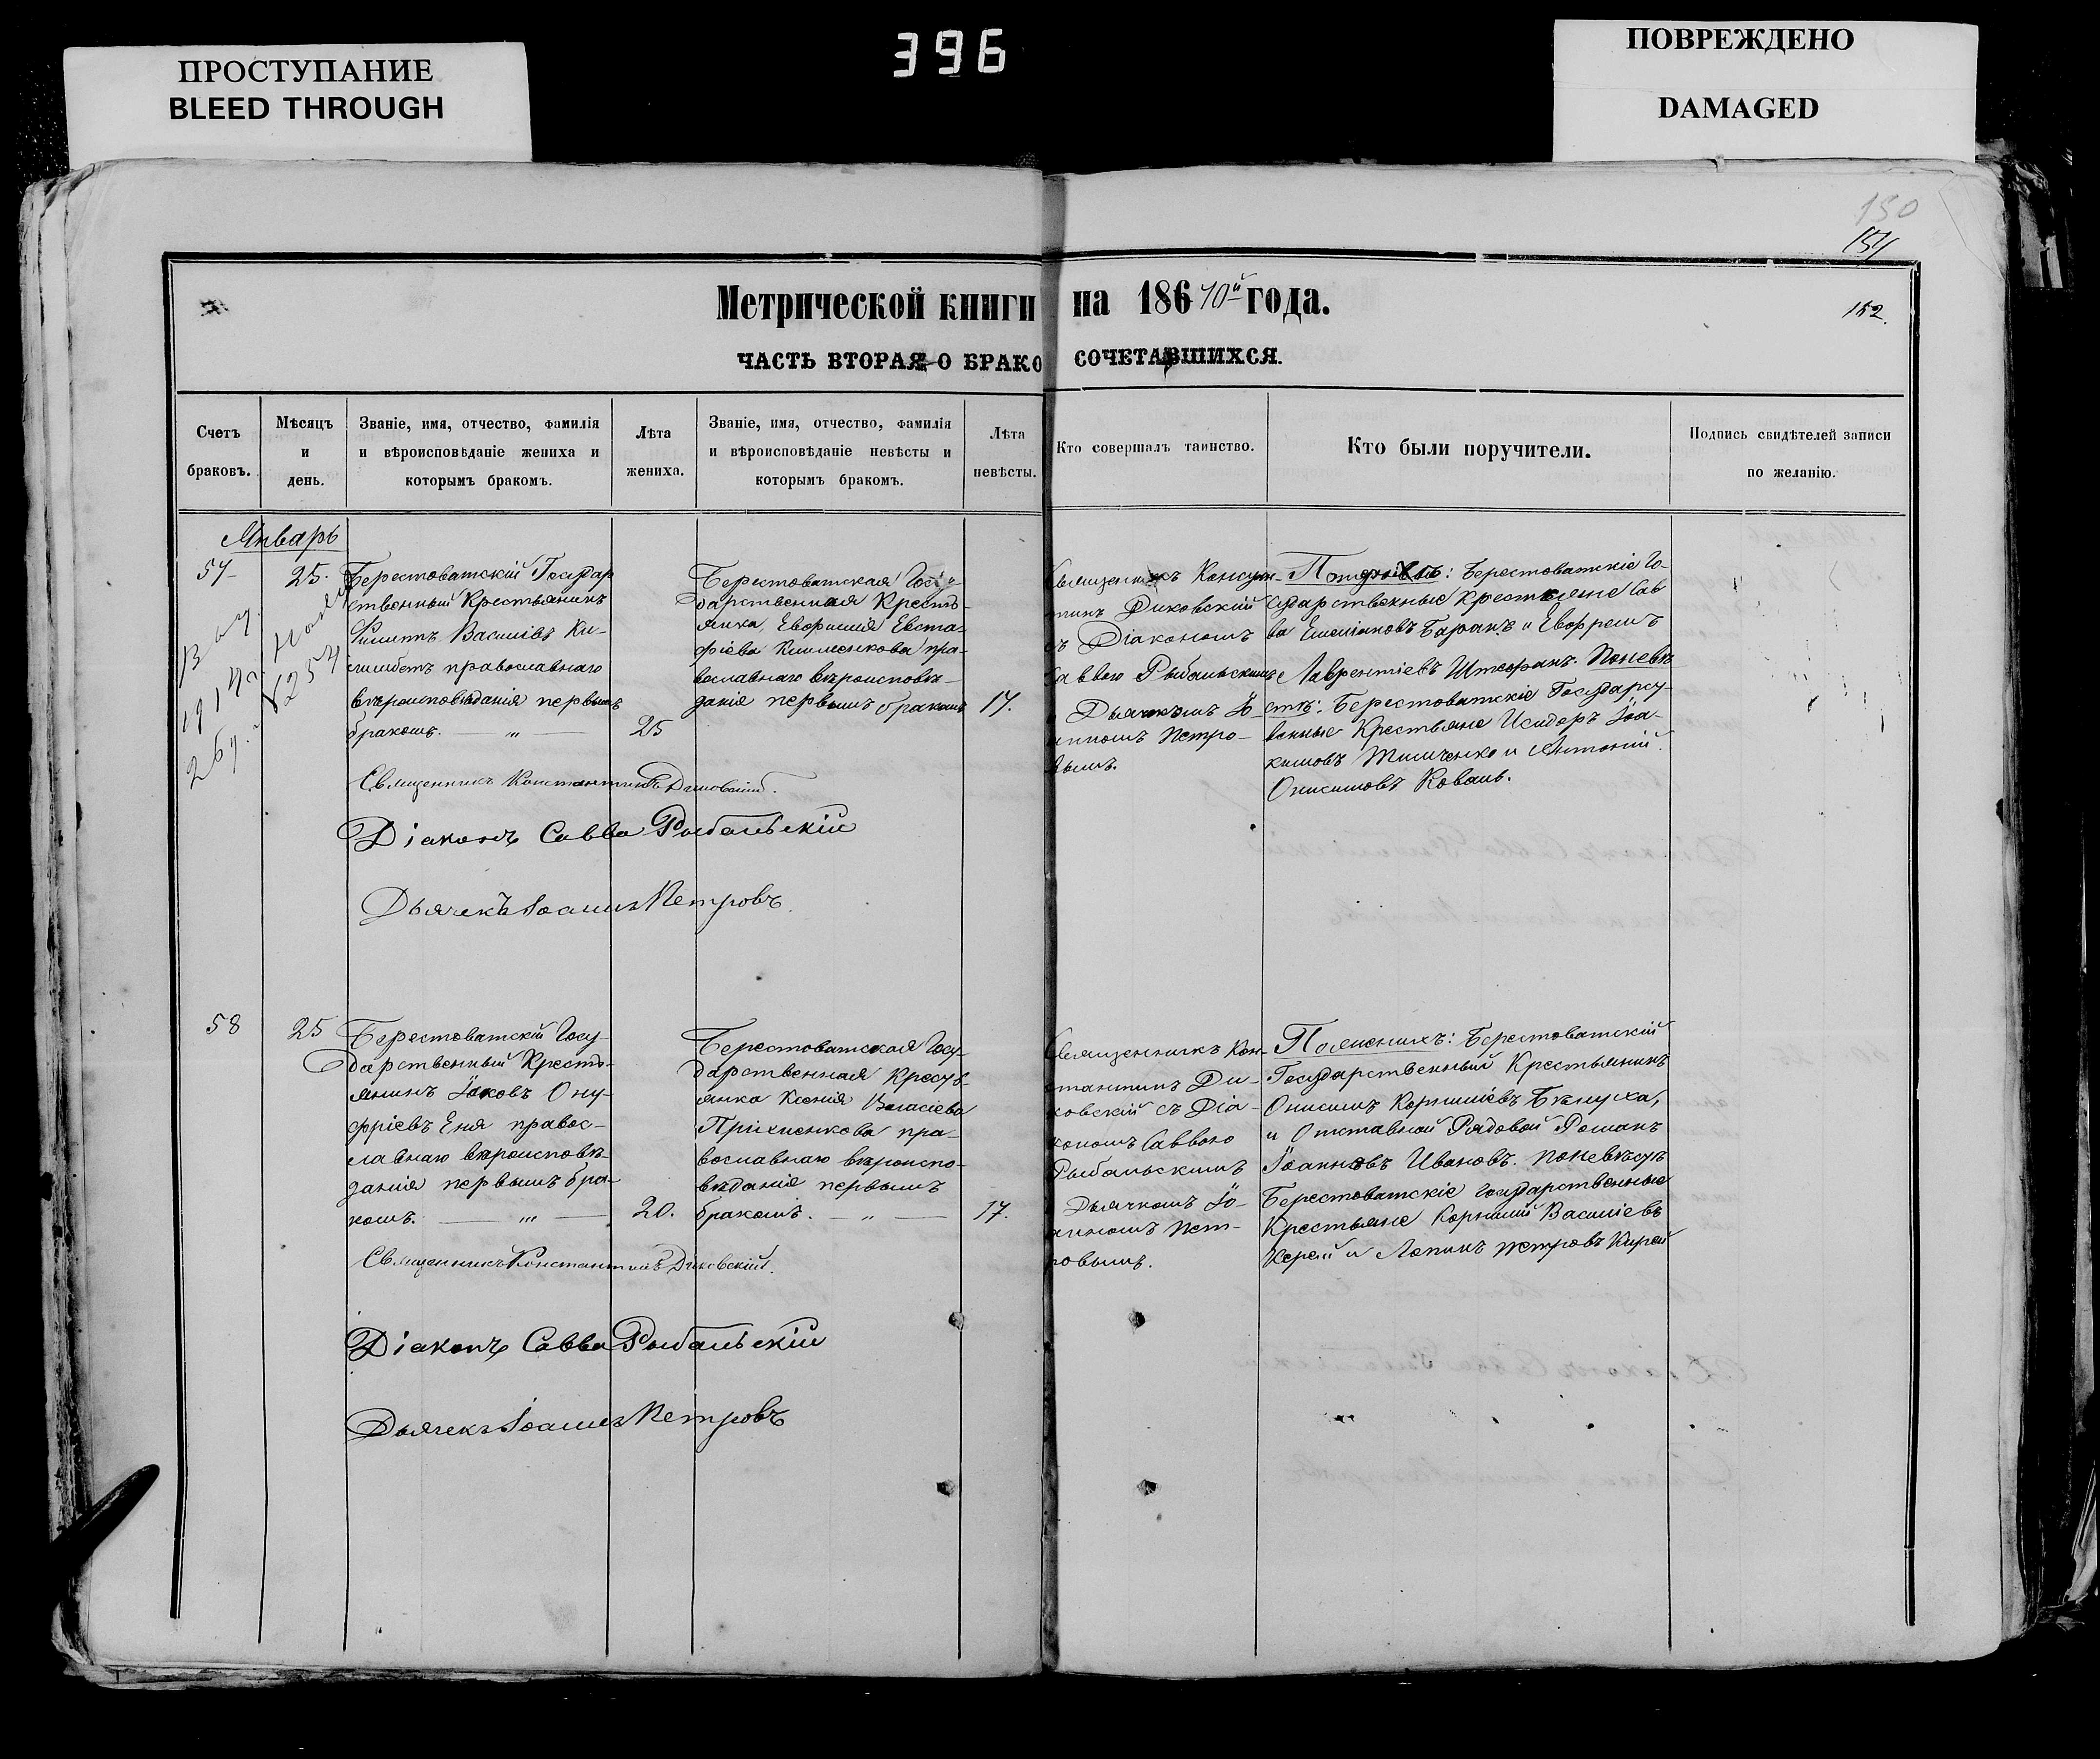 396
ПРОСТУПАНИЕ
BLEED THROUGH
ПОВРЕЖДЕНО
DAMAGED
150
151
152.
Метрической книги на 18670й года.
ЧАСТЬ ВТОРАЯ О БРАКОСОЧЕТАВШИХСЯ.
Счетъ
браковъ.
Мѣсяцъ
и
день.
Званіе, имя, отчество, фамилія
и вѣроисповѣданіе жениха и
которымъ бракомъ.
Лѣта
жениха.
Званіе, имя, отчество, фамилія
и вѣроисповѣданіе невѣсты и
которымъ бракомъ.
Лѣта
невѣсты.
Кто совершалъ таинство.
Кто были поручители.
Подпись свидѣтелей записи
по желанію.
Январь
57
25.
Берестоватскій Государ
ственный Крестьянинъ
Филиппъ Васильевъ
православнаго
вѣроисповѣданія первымъ
бракомъ. — „ —
25
Берестоватская Госу-
дарственная Кресть-
янка, Евфимія Евста-
фіева Клименкова пра-
вославнаго вѣроисповѣ-
данія первымъ бракомъ
17.
Священникъ Констан-
тинъ Диковский
съ Діакономъ
Саввою Рыбальскимъ
Дьячкомъ Іо-
анномъ Петро-
вымъ.
Берестоватскіе Го-
сударственные Крестьяне Сав
ва Емеліановъ Баранъ и Ефремъ
Лаврентіевъ. По невѣ
стѣ: Берестоватскіе Государст-
венные Крестьяне Исидоръ Іоа-
кимовъ Тимченко и Антоній
Онисимовъ Коваль.
Священникъ Константинъ Диковский.
Діаконъ Савва Рыбальскій
Дьячекъ Іоаннъ Петровъ.
Выд.
191
№ 254
58
25
Берестоватскій Госу-
дарственный Кресть-
янинъ Іаковъ Ону-
фріевъ Еня правос-
лавнаго вѣроисповѣ-
данія первымъ бра-
комъ. — „ —
20.
Берестоватская Госу-
дарственная Крест-
янка Ксенія Власіева
Прихненкова пра-
вославнаго вѣроиспо-
вѣданія первымъ
бракомъ. „ —
17.
Священникъ Кон-
стантинъ Ди-
ковский съ Діа-
кономъ Саввою
Рыбальскимъ
Дьячкомъ Іо-
анномъ Пет-
ровымъ.
По женихъ: Берестоватскій
Государственный Крестьянинъ
Онисимъ Корниліевъ
и Отставной Рядовой Романъ
Іоанновъ Ивановъ. По невѣстѣ
Берестоватскіе Государственные
Крестьяне Корнилій Васильевъ
и Петровъ Кирей
Священникъ Константинъ Диковский.
Діаконъ Савва Рыбальскій
Дьячекъ Іоаннъ Петровъ